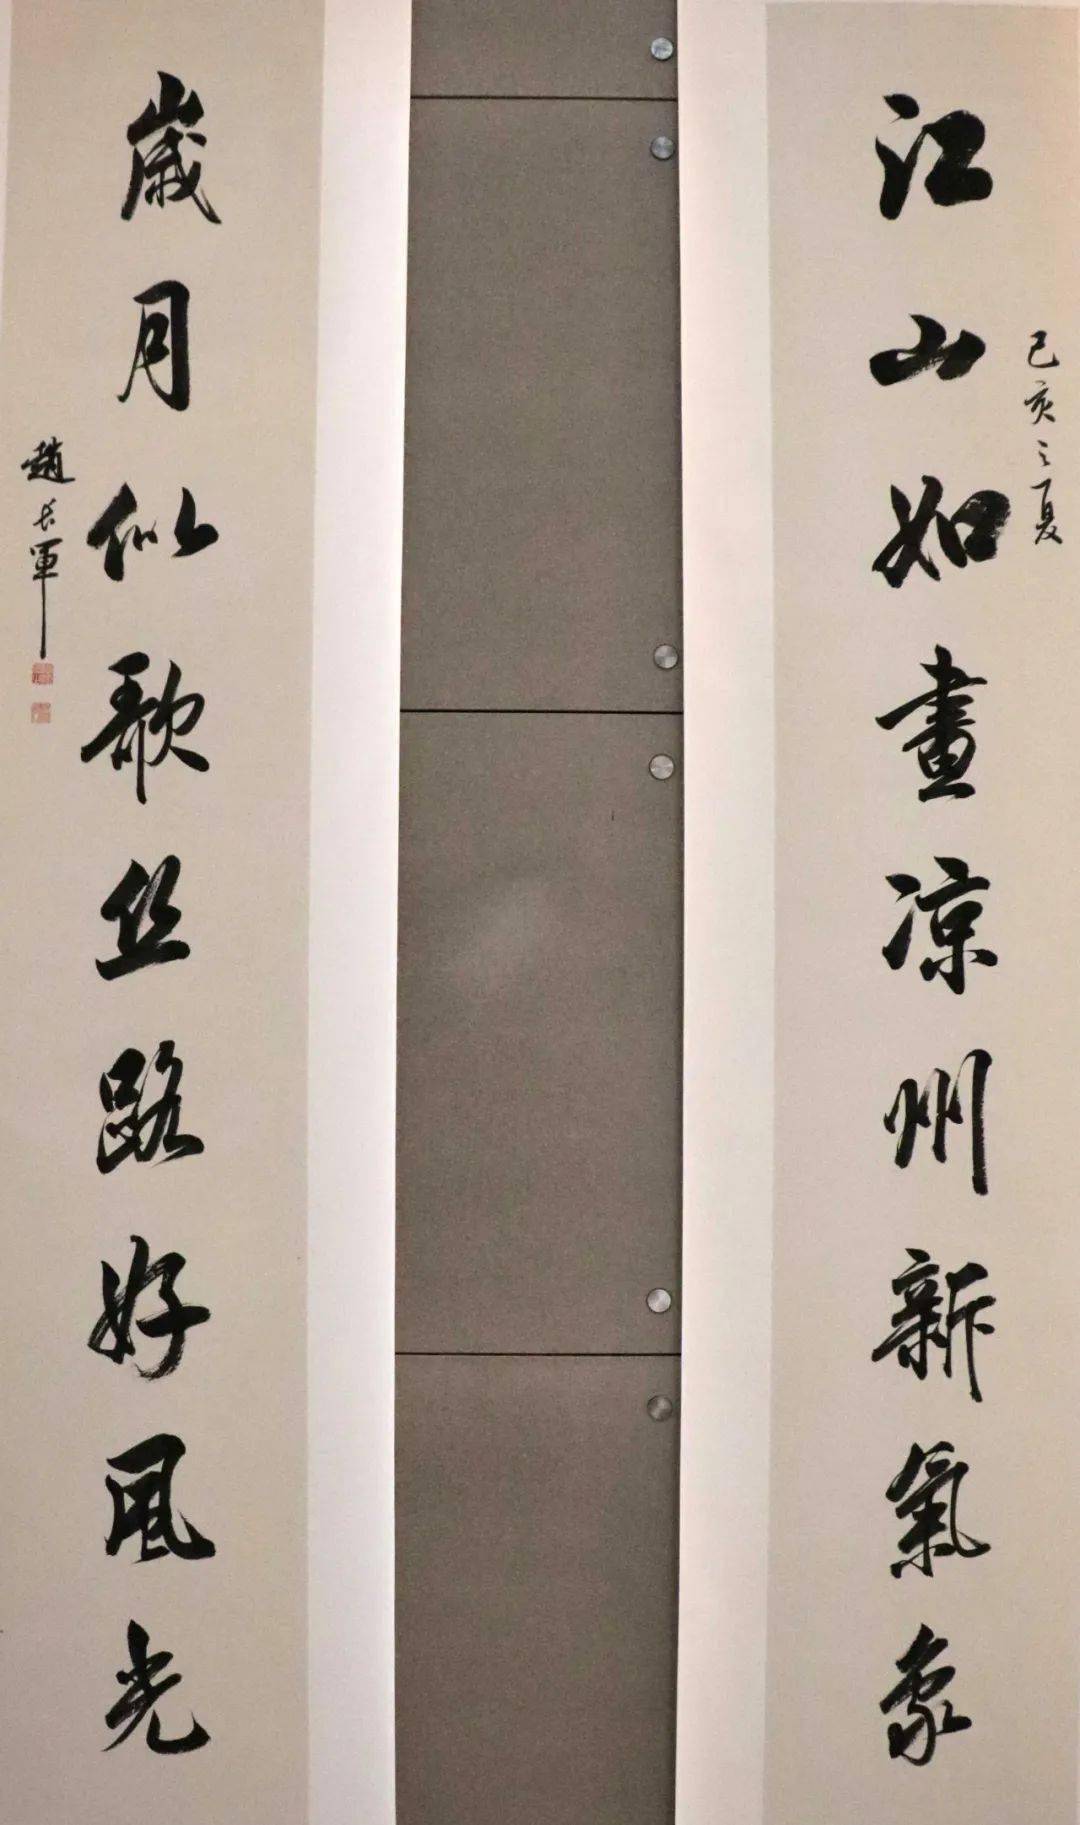 己亥之夏
江山如畫凉州新氣象
歲月似歌丝路好風光
趙長軍